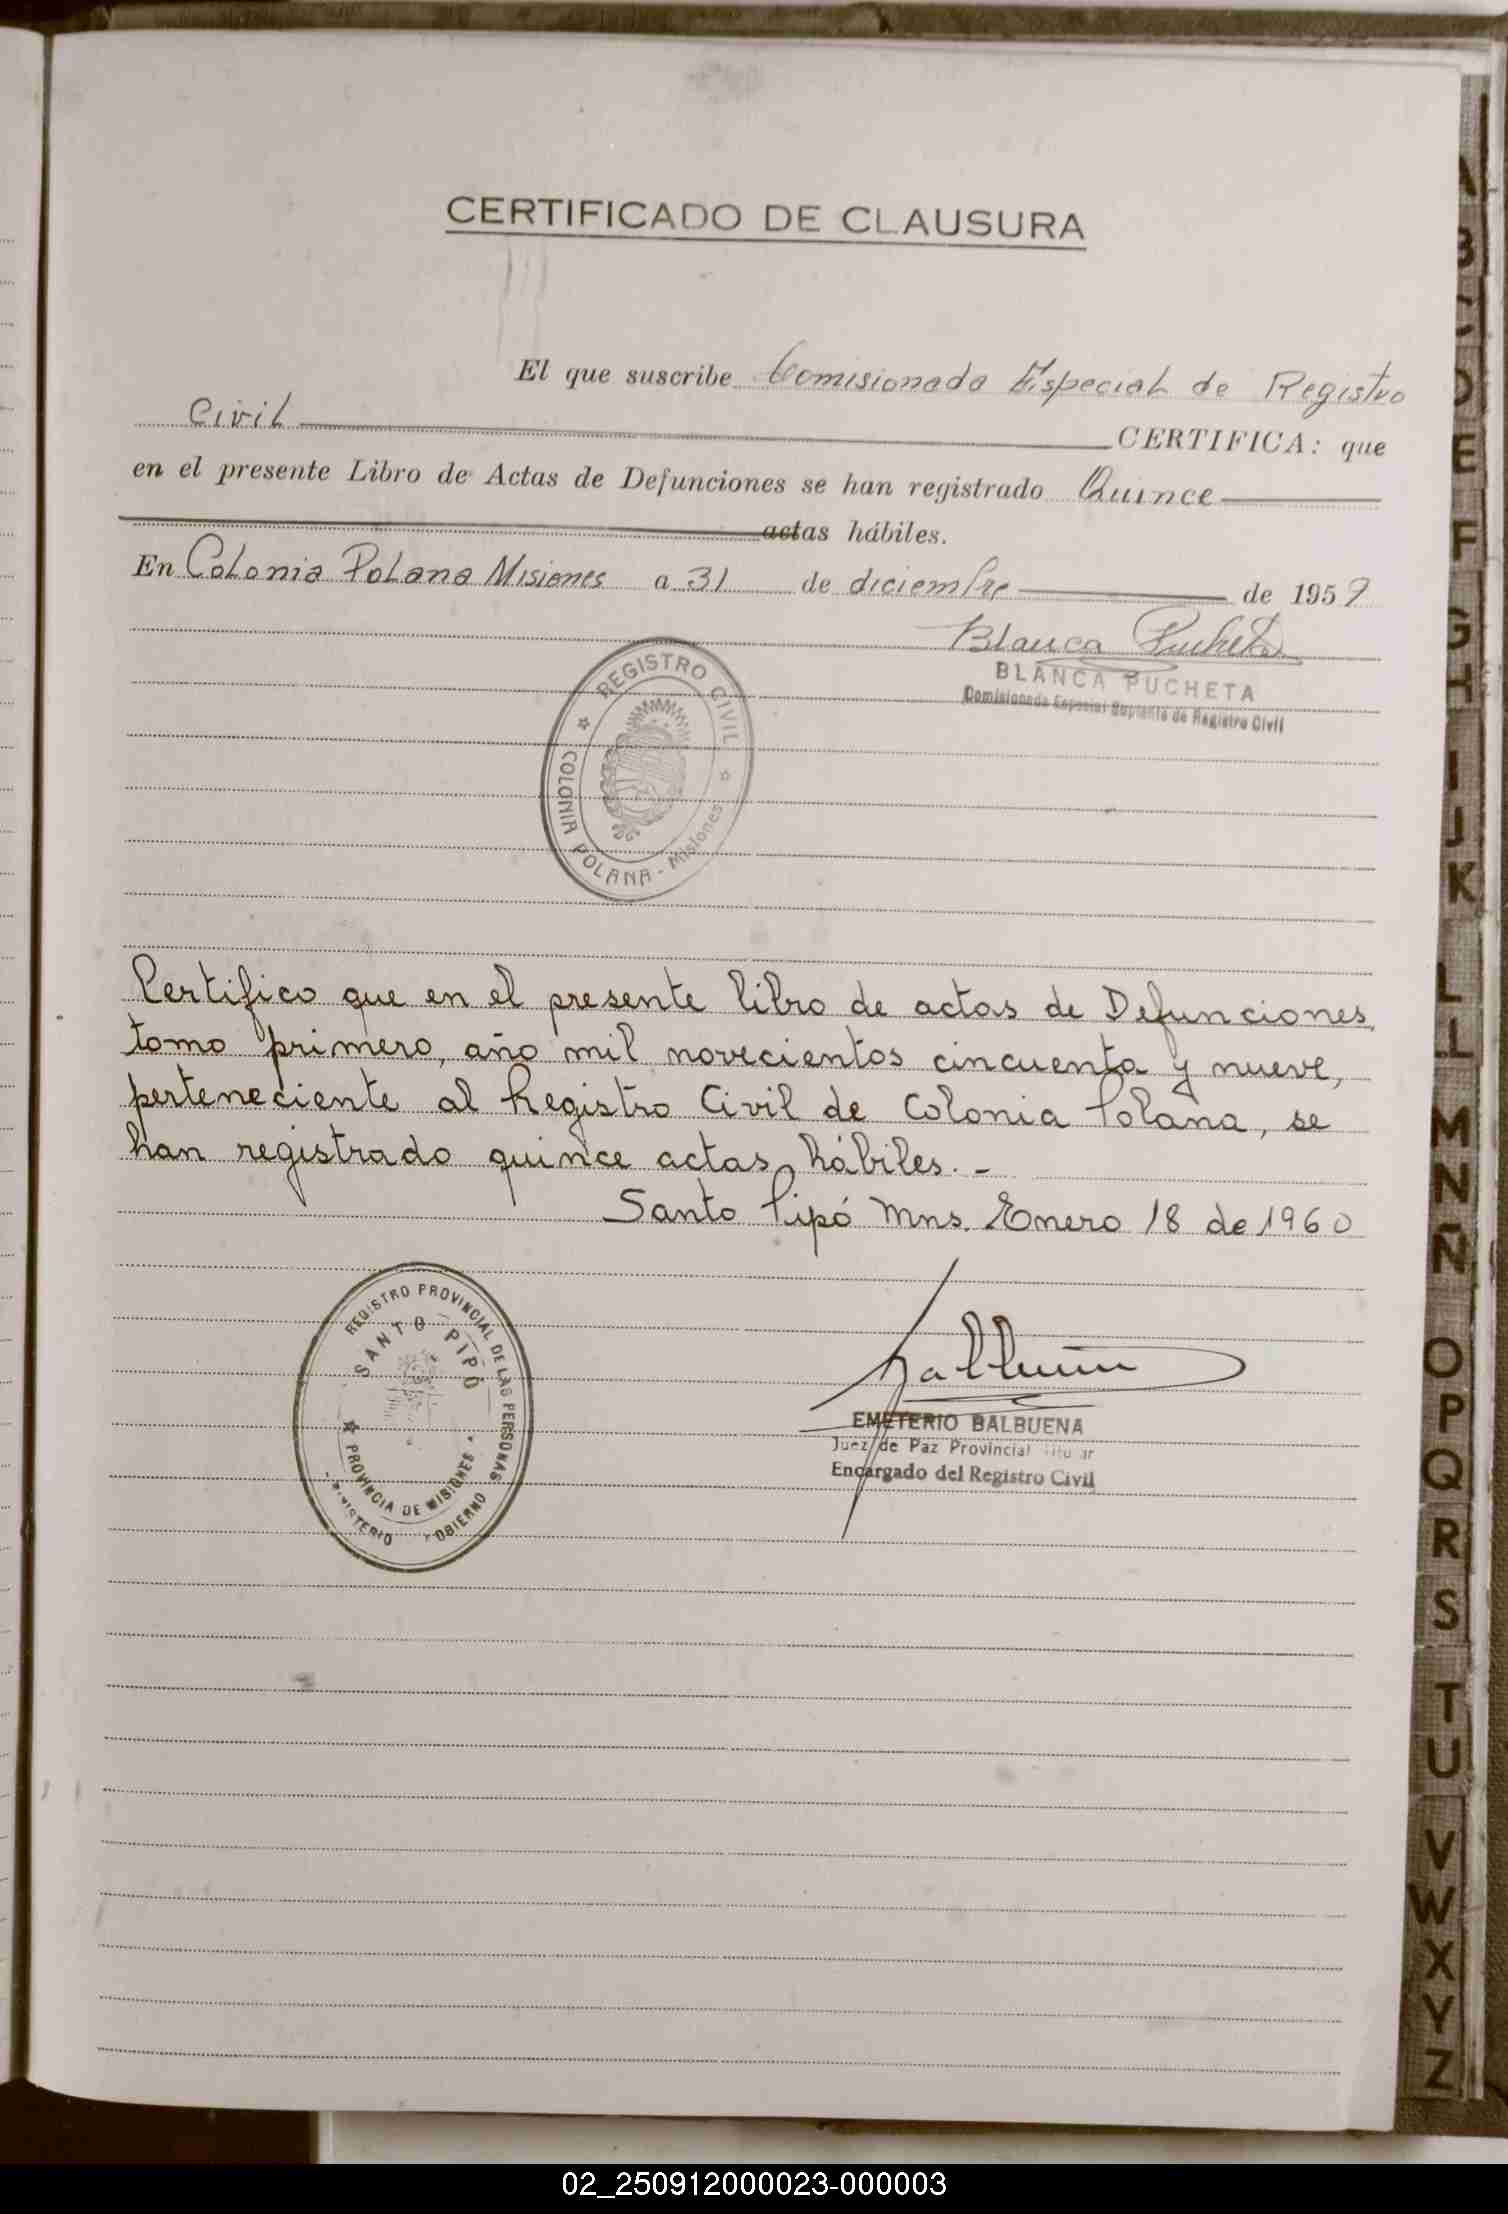 CERTIFICADO DE CLAUSURA
El que suscribe Comisionada Especial de Registro
Civil CERTIFICA: que
en el presente Libro de Actas de Defunciones se han registrado Quince
actas hábiles.
En Colonia Polana Misiones a 31 de diciembre de 1959
Blanca Pucheta
BLANCA PUCHETA
Comisionada Especial Suplente de Registro Civil
REGISTRO CIVIL
COLONIA POLANA - Misiones
Certifico que en el presente libro de actas de Defunciones,
tomo primero, año mil novecientos cincuenta y nueve,
perteneciente al Registro Civil de Colonia Polana, se
han registrado quince actas hábiles.-
Santo Pipó Mns. Enero 18 de 1960
REGISTRO PROVINCIAL DE LAS PERSONAS
SANTO PIPÓ
PROVINCIA DE MISIONES
MINISTERIO GOBIERNO
Balbuena
EMETERIO BALBUENA
Juez de Paz Provincial Titular
Encargado del Registro Civil
A
B
C
D
E
F
G
H
I
J
K
L
LL
M
N
Ñ
O
P
Q
R
S
T
U
V
W
X
Y
Z
02_250912000023-000003